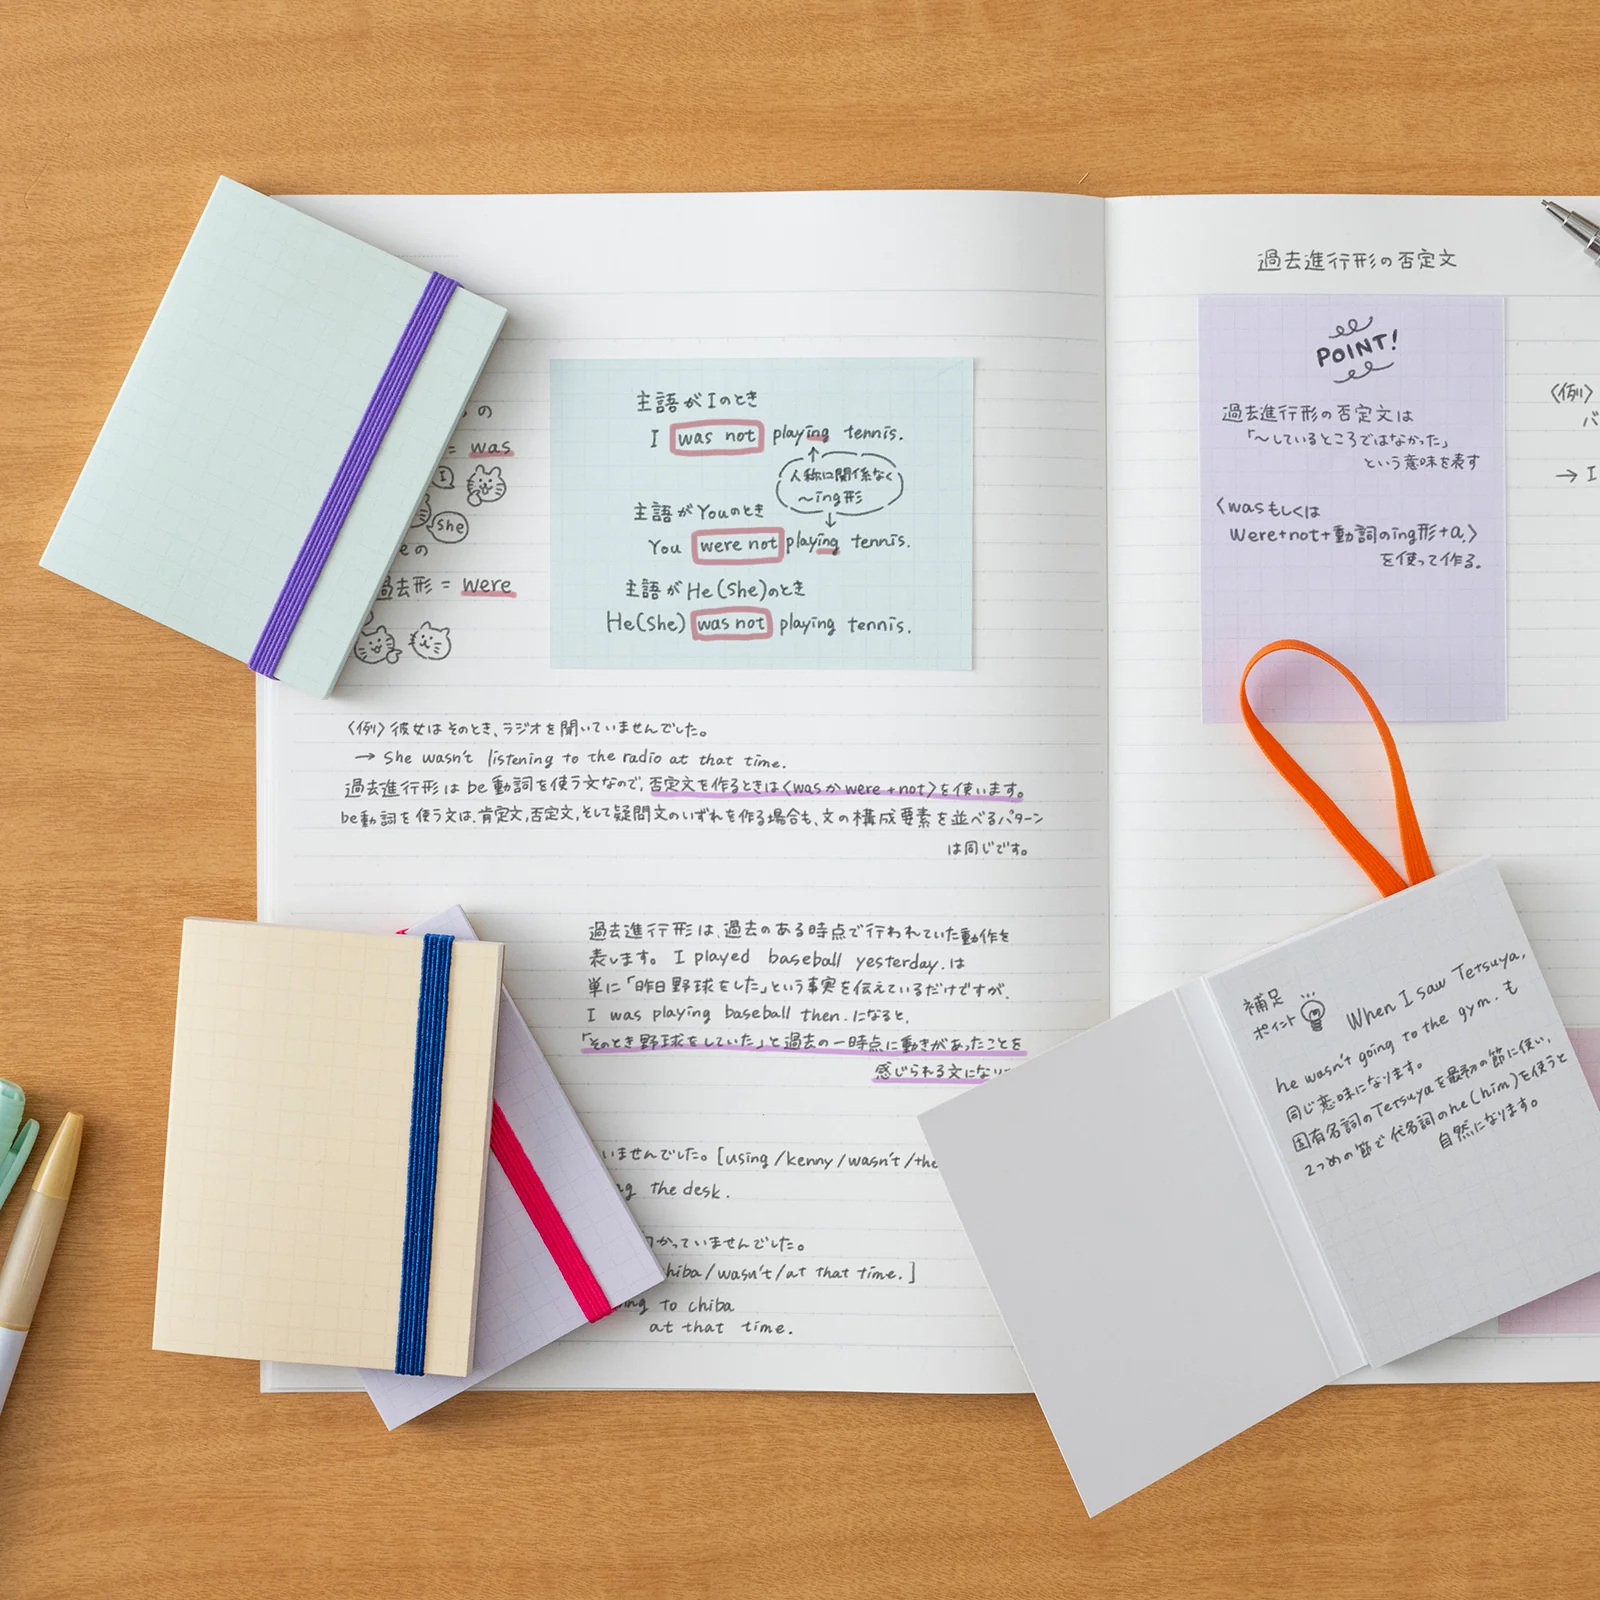 の
= was
I
she
の
過去形 = were
主語が Iのとき
I was not playing tennis.
人称に関係なく
～ing形
主語が Youのとき
You were not playing tennis.
主語が He(She)のとき
He(She) was not playing tennis.
〈例〉彼女はそのとき、ラジオを聞いていませんでした。
→ She wasn't listening to the radio at that time.
過去進行形は be動詞を使う文なので、否定文を作るときは〈was か were + not〉を使います。
be動詞を使う文は、肯定文,否定文,そして疑問文のいずれを作る場合も、文の構成要素を並べるパターン
は同じです。
過去進行形は、過去のある時点で行われていた動作を
表します。 I played baseball yesterday. は
単に「昨日野球をした」という事実を伝えているだけですが、
I was playing baseball then. になると、
「そのとき野球をしていた」と過去の一時点に動きがあったことを
感じられる文になり
いませんでした。[using/kenny/wasn't/the
the desk.
かっていませんでした。
hiba/wasn't/at that time.]
ing to chiba
at that time.
過去進行形の否定文
POINT!
過去進行形の否定文は
「～しているところではなかった」
という意味を表す
〈wasもしくは
Were+not+動詞のing形+a.〉
を使って作る。
〈例〉
バ
→ I
補足
ポイント
When I saw Tetsuya,
he wasn't going to the gym. も
同じ意味になります。
固有名詞のTetsuyaを最初の節に使い、
2つめの節で代名詞のhe(him)を使うと
自然になります。